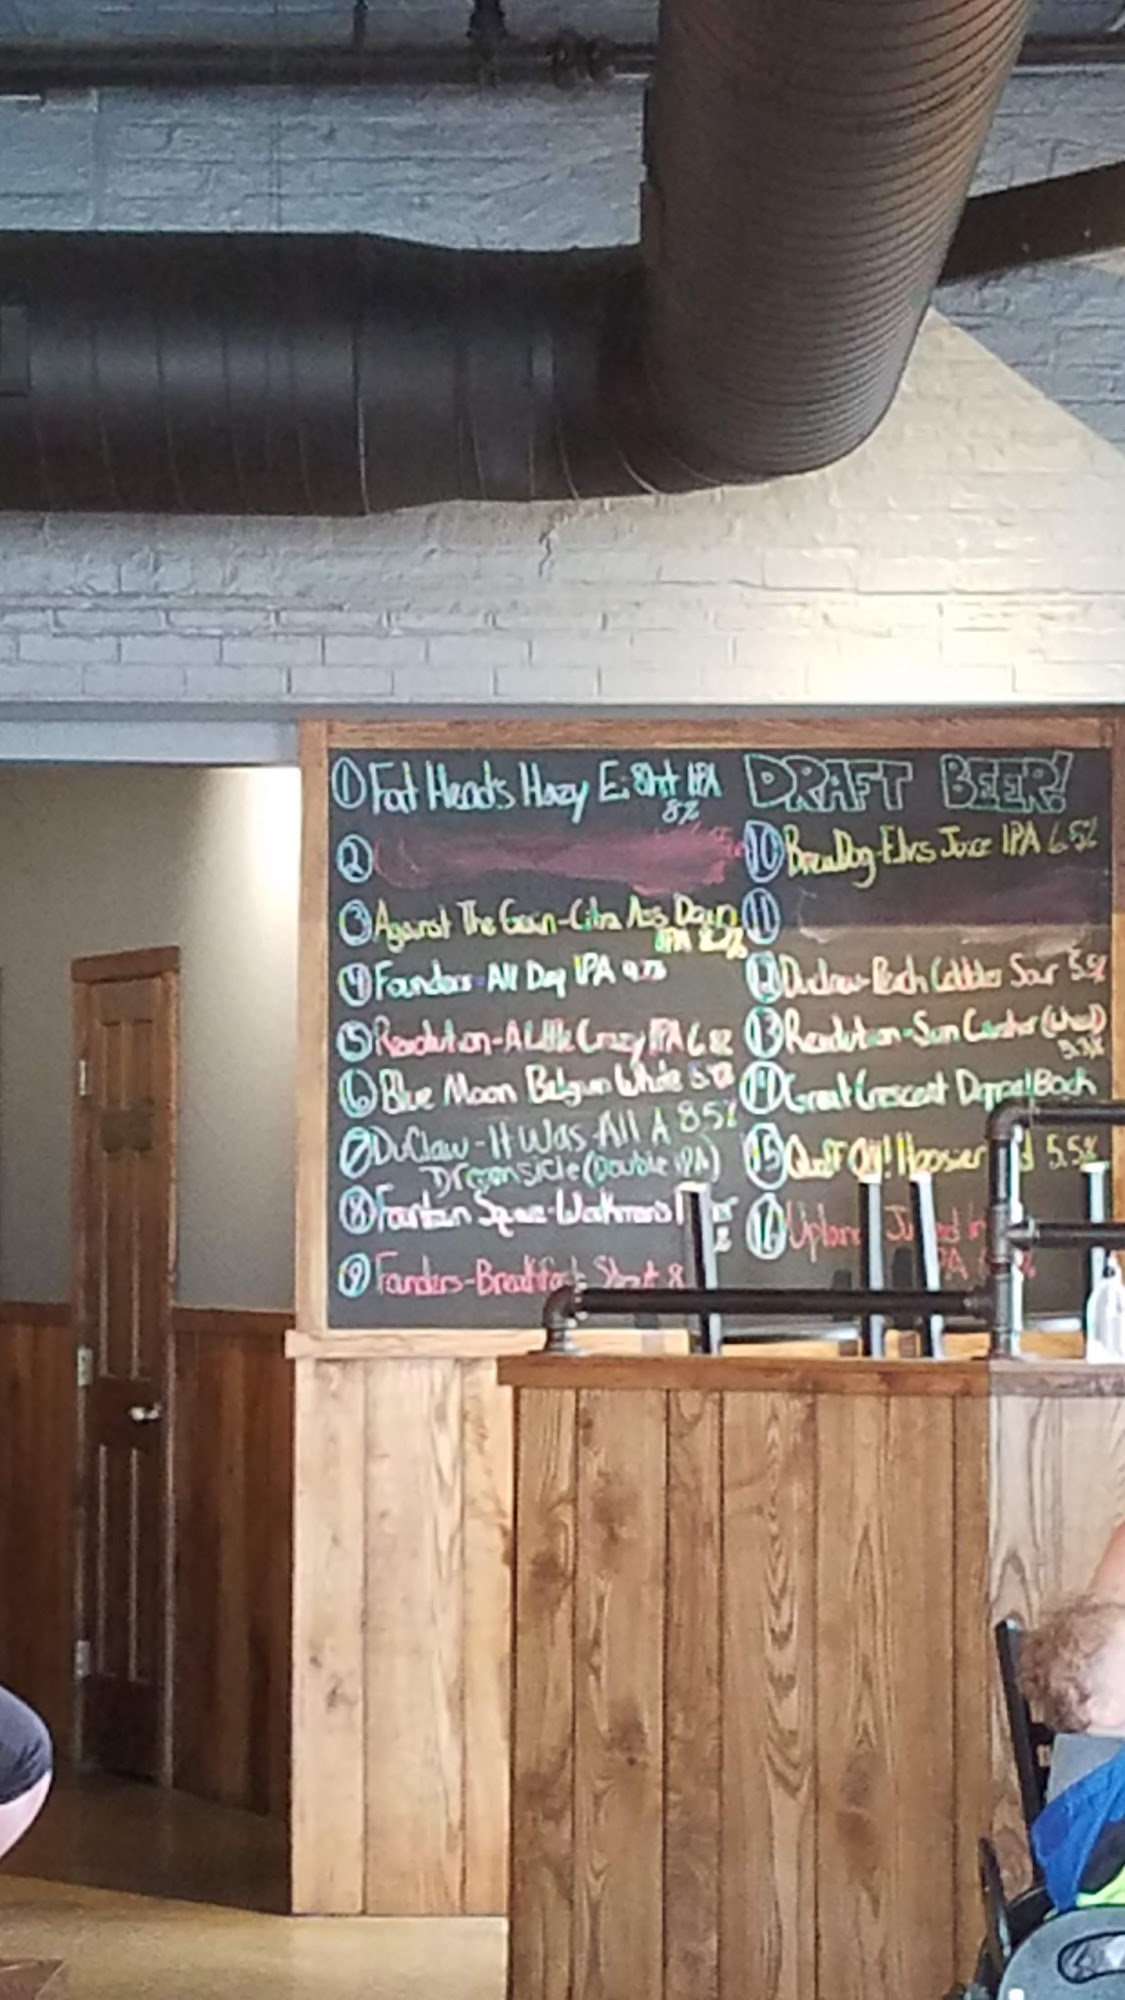 ① Fat Head's Hazy E:8ht IPA
8%
②
③ Against The Grain-Citra Ass Down
IPA 8.2%
④ Founders-All Day IPA 4.7%
⑤ Revolution-A Little Crazy IPA 6.8%
⑥ Blue Moon Belgian White
⑦ DuClaw-It Was All A 8.5%
Dreamsicle (Double IPA)
⑧ Fountain Square-Workman's
⑨ Founders-Breakfast Stout 8
DRAFT BEER!
⑩ BrewDog-Elvis Juice IPA 6.5%
⑪
⑫ Duclaw-Peach Cobbler Sour 5.5%
⑬ Revolution-Sun Crusher (Wheat)
5.3%
⑭ Great Crescent Doppel Bock
⑮ Quaff On! Hoosier 5.5%
⑯ Upland